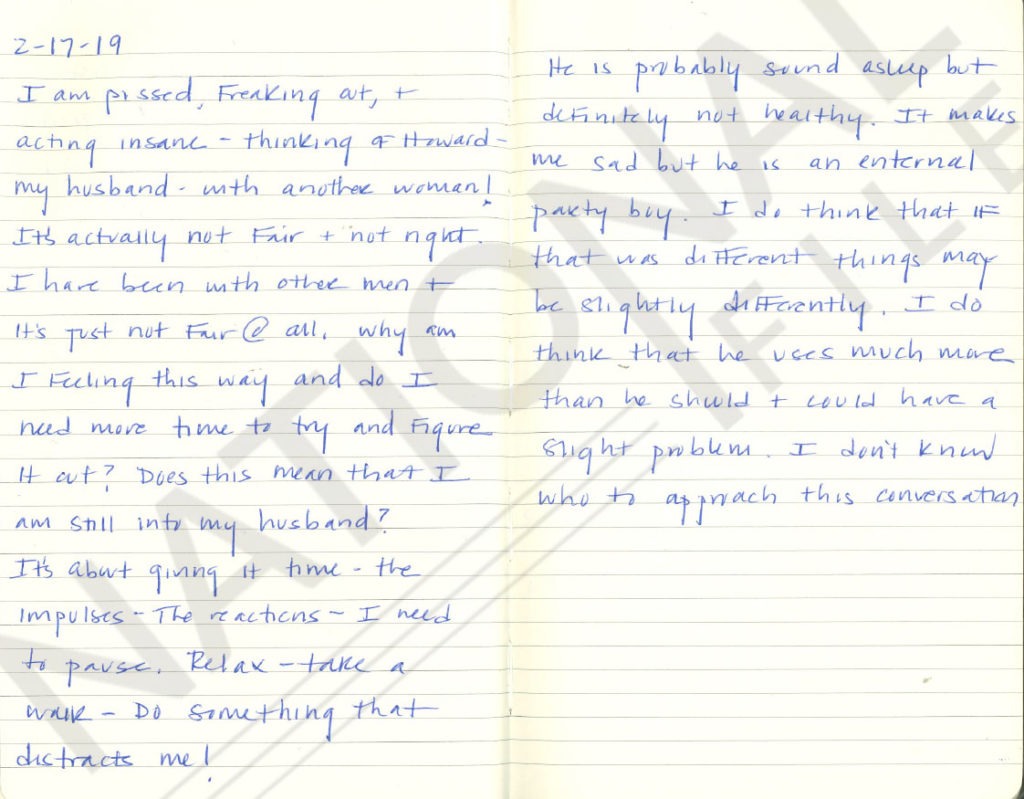 2-17-19
I am pissed, Freaking out, +
acting insane - thinking of Howard -
my husband - with another woman!
It's actually not Fair + not right.
I have been with other men +
It's just not Fair @ all. Why am
I Feeling this way and do I
need more time to try and Figure
It out? Does this mean that I
am still into my husband?
It's about giving it time - the
Impulses - The reactions - I need
to pause. Relax - take a
walk - Do something that
distracts me!
He is probably sound asleep but
definitely not healthy. It makes
me sad but he is an enternal
party boy. I do think that IF
that was different things may
be slightly differently. I do
think that he uses much more
than he should + could have a
slight problem. I don't know
who to approach this conversation
NATIONAL
FILE